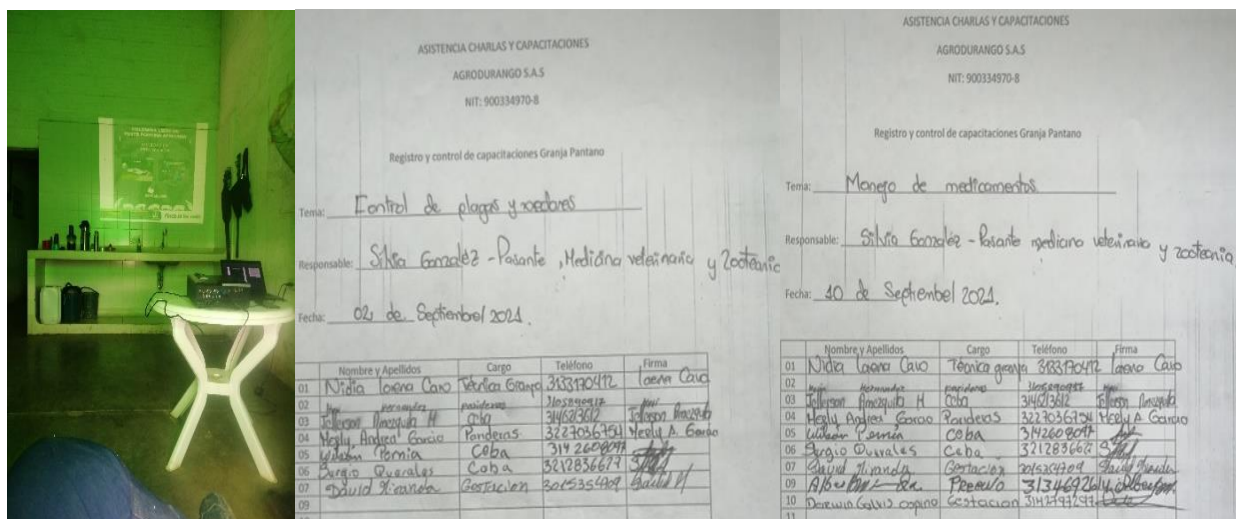 ASISTENCIA CHARLAS Y CAPACITACIONES
AGRODURANGO S.A.S
NIT: 900334970-8
Registro y control de capacitaciones Granja Pantano
Tema: Control de plagas y roedores
Responsable: Silvia González - Pasante, Medicina veterinaria y zootecnia
Fecha: 02 de Septiembre/ 2021.
Nombre y Apellidos Cargo Teléfono Firma
01 Nidia Lorena Caro Técnica Granja 3133170412 Lorena Caro
02 Hernandez parideras
03 Jefferson Amezquita H Ceba 3146213612 Jefferson Amezquita
04 Heely Andrea Garcia Parideras 3227036754 Heely A. Garcia
05 Wilson Pernia Ceba 3142608097
06 Sergio Querales Ceba 3212836677
07 David Miranda Gestacion David M
09
ASISTENCIA CHARLAS Y CAPACITACIONES
AGRODURANGO S.A.S
NIT: 900334970-8
Registro y control de capacitaciones Granja Pantano
Tema: Manejo de medicamentos
Responsable: Silvia González - Pasante medicina veterinaria y zootecnia
Fecha: 10 de Septiembre/ 2021.
Nombre y Apellidos Cargo Teléfono Firma
01 Nidia Lorena Caro Técnica granja 3133170412 Lorena Caro
02 Hernandez parideras
03 Jefferson Amezquita H Ceba 3146213612 Jefferson Amezquita
04 Heely Andrea Garcia Parideras 3227036754 Heely A Garcia
05 Wilson Pernia Ceba 3142608097
06 Sergio Querales Ceba
07 David Miranda Gestación David Miranda
09
10 Gestacion
11